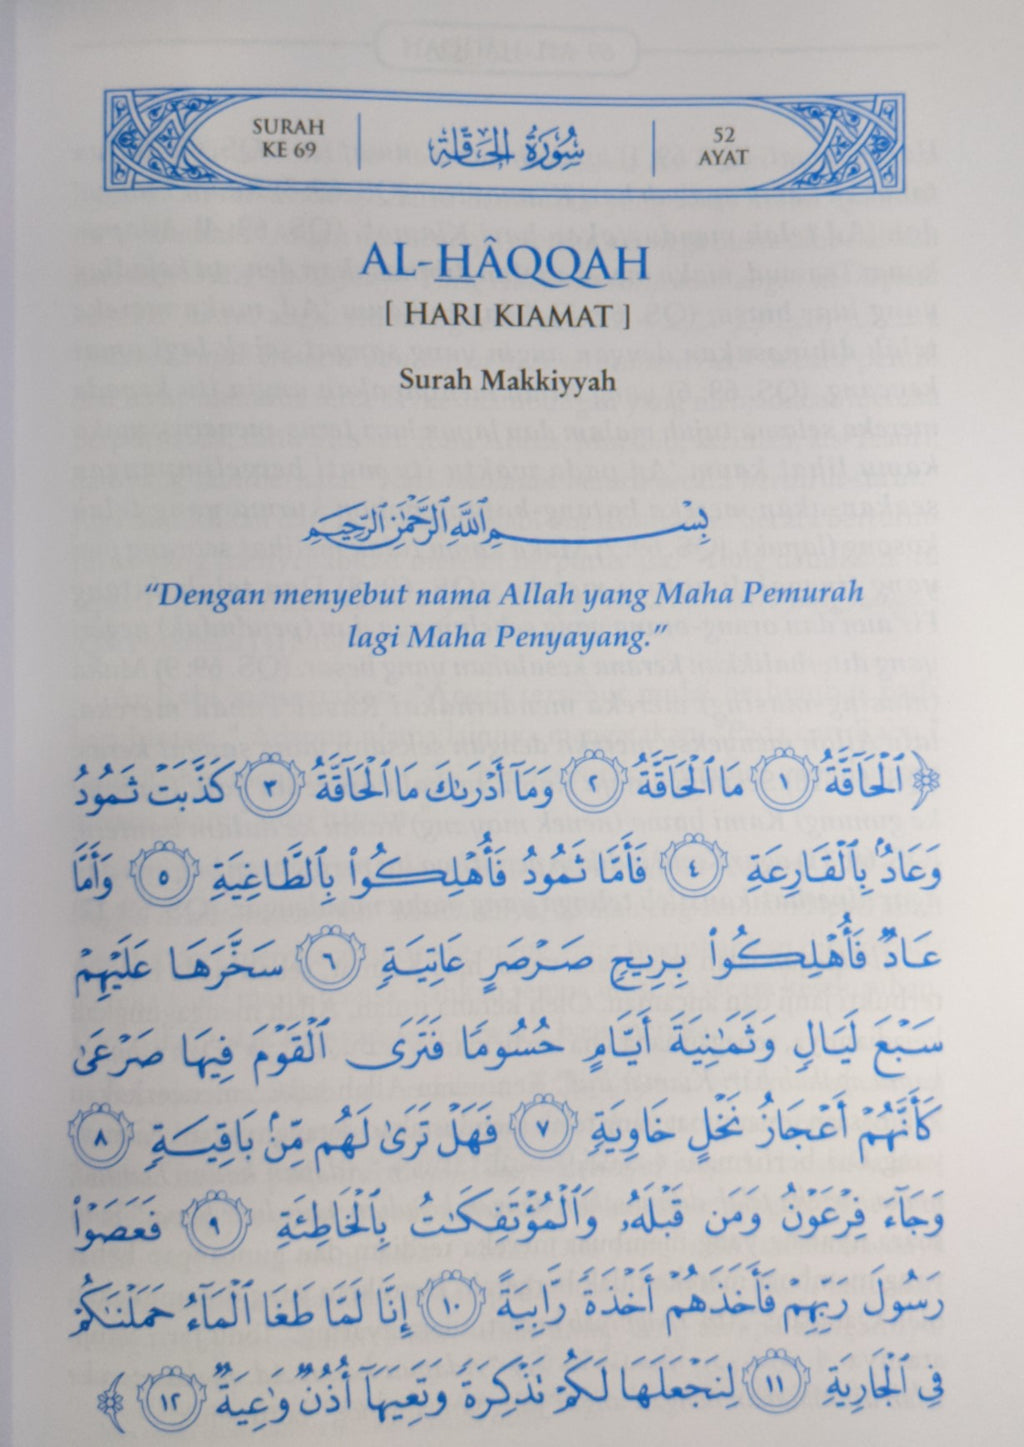 SURAH
KE 69
سُورَةُ الْحَاقَّةِ
52
AYAT
AL-HÂQQAH
[ HARI KIAMAT ]
Surah Makkiyyah
بِسْمِ ٱللَّهِ ٱلرَّحْمَٰنِ ٱلرَّحِيمِ
“Dengan menyebut nama Allah yang Maha Pemurah
lagi Maha Penyayang.”
ٱلْحَآقَّةُ ١ مَا ٱلْحَآقَّةُ ٢ وَمَآ أَدْرَىٰكَ مَا ٱلْحَآقَّةُ ٣ كَذَّبَتْ ثَمُودُ
وَعَادٌۢ بِٱلْقَارِعَةِ ٤ فَأَمَّا ثَمُودُ فَأُهْلِكُوا۟ بِٱلطَّاغِيَةِ ٥ وَأَمَّا
عَادٌ فَأُهْلِكُوا۟ بِرِيحٍ صَرْصَرٍ عَاتِيَةٍ ٦ سَخَّرَهَا عَلَيْهِمْ
سَبْعَ لَيَالٍ وَثَمَٰنِيَةَ أَيَّامٍ حُسُومًا فَتَرَى ٱلْقَوْمَ فِيهَا صَرْعَىٰ
كَأَنَّهُمْ أَعْجَازُ نَخْلٍ خَاوِيَةٍ ٧ فَهَلْ تَرَىٰ لَهُم مِّنۢ بَاقِيَةٍ ٨
وَجَآءَ فِرْعَوْنُ وَمَن قَبْلَهُۥ وَٱلْمُؤْتَفِكَٰتُ بِٱلْخَاطِئَةِ ٩ فَعَصَوْا۟
رَسُولَ رَبِّهِمْ فَأَخَذَهُمْ أَخْذَةً رَّابِيَةً ١٠ إِنَّا لَمَّا طَغَا ٱلْمَآءُ حَمَلْنَٰكُمْ
فِى ٱلْجَارِيَةِ ١١ لِنَجْعَلَهَا لَكُمْ تَذْكِرَةً وَتَعِيَهَآ أُذُنٌ وَٰعِيَةٌ ١٢